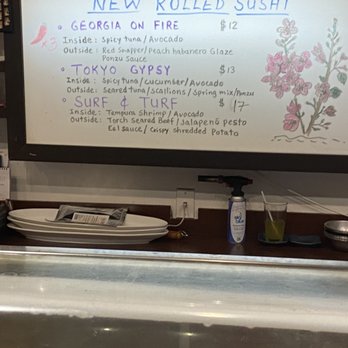 NEW ROLLED SUSHI
• GEORGIA ON FIRE $12
Inside: Spicy tuna / Avocado
Outside: Red Snapper / Peach habanero Glaze
Ponzu Sauce
• TOKYO GYPSY $13
Inside: Spicy tuna / cucumber / Avocado
Outside: Seared tuna / scallions / Spring mix / Ponzu
• SURF & TURF $17
Inside: Tempura Shrimp / Avocado
Outside: Torch Seared Beef / Jalapeño pesto
Eel sauce / Crispy shredded Potato